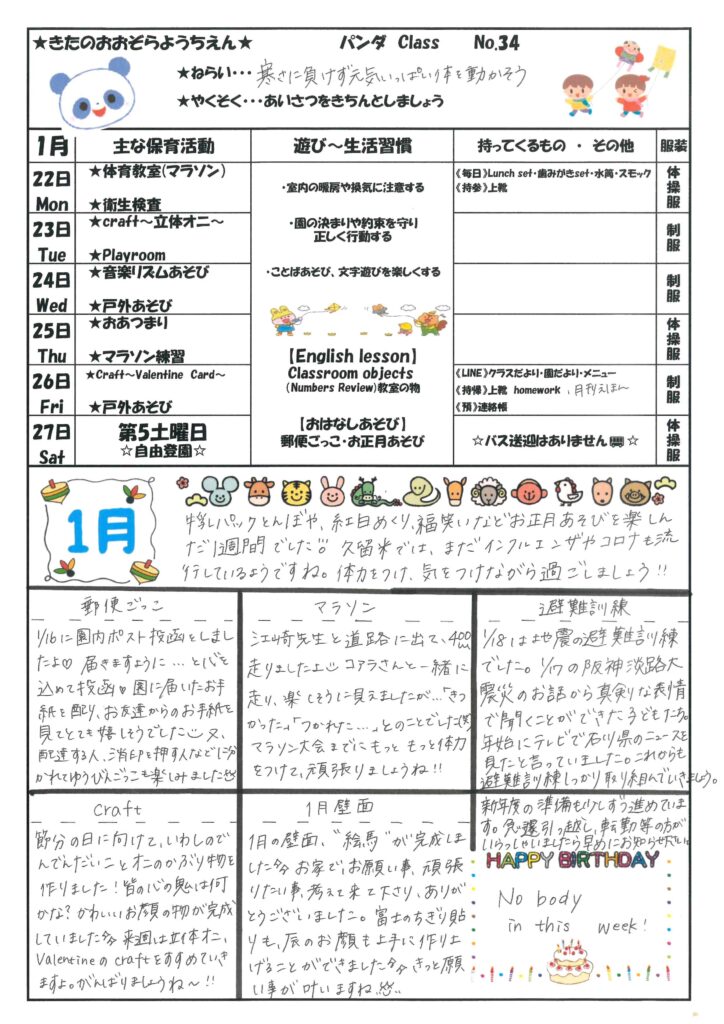 ★きたのおおぞらようちえん★ パンダ Class No.34
★ねらい・・・寒さに負けず元気いっぱい体を動かそう
★やくそく・・・あいさつをきちんとしましょう
1月 主な保育活動 遊び～生活習慣 持ってくるもの ・ その他 服装
22日 Mon
★体育教室(マラソン)
★衛生検査
《毎日》Lunch set・歯みがきset・水筒・スモック
《持参》上靴
体操服
23日 Tue
★craft～立体オニ～
★Playroom
制服
24日 Wed
★音楽リズムあそび
★戸外あそび
制服
25日 Thu
★おあつまり
★マラソン練習
体操服
26日 Fri
★Craft～Valentine Card～
★戸外あそび
《LINE》クラスだより・園だより・メニュー
《持帰》上靴 homework 、月刊えほん
《預》連絡帳
制服
27日 Sat
第5土曜日
☆自由登園☆
☆バス送迎はありません☆
体操服
・室内の暖房や換気に注意する
・園の決まりや約束を守り
正しく行動する
・ことばあそび、文字遊びを楽しくする
【English lesson】
Classroom objects
(Numbers Review)教室の物
【おはなしあそび】
郵便ごっこ・お正月あそび
1月
牛乳パックとんぼや、紅白めくり、福笑いなどお正月あそびを楽しん
だ1週間でした!! 久留米では、まだインフルエンザやコロナも流
行しているようですね。体力をつけ、気をつけながら過ごしましょう!!
郵便ごっこ
1/16に園内ポスト投函をしまし
たよ♡ 届きますように…と心を
込めて投函♡ 園に届いたお手
紙を配り、お友達からのお手紙を
見てとても嬉しそうでした 又、
配達する人、消印を押す人などに分
かれてゆうびんごっこも楽しみました
マラソン
江崎先生と道路に出て、400m
走りましたよ コアラさんと一緒に
走り、楽しそうに見えましたが…「きつ
かった」「つかれた…」とのことでした(笑)
マラソン大会までにもっともっと体力
をつけて、頑張りましょうね!!
避難訓練
1/18は地震の避難訓練
でした。1/17の阪神淡路大
震災のお話から真剣な表情
で聞くことができた子どもたち。
年始にテレビで石川県のニュースを
見たと言っていました。これからも
避難訓練しっかり取り組んでいきましょう。
Craft
節分の日に向けて、いわしので
んでんだいことオニのかぶり物を
作りました!皆の心の鬼は何
かな?かわいいお顔の物が完成
していました 来週は立体オニ、
Valentineのcraftをすすめていき
ますよ。がんばりましょうね～!!
1月壁面
1月の壁面、“絵馬”が完成しま
した お家で、お願い事、頑張
りたい事、考えて来て下さり、ありが
とうございました。富士のちぎり貼
りも、辰のお顔も上手に作り上
げることができました きっと願
い事が叶いますね
新年度の準備も少しずつ進めていま
す。急遽引っ越し、転勤等の方が
いらっしゃいましたら早めにお知らせ下さい
HAPPY BIRTHDAY
No body
in this week!